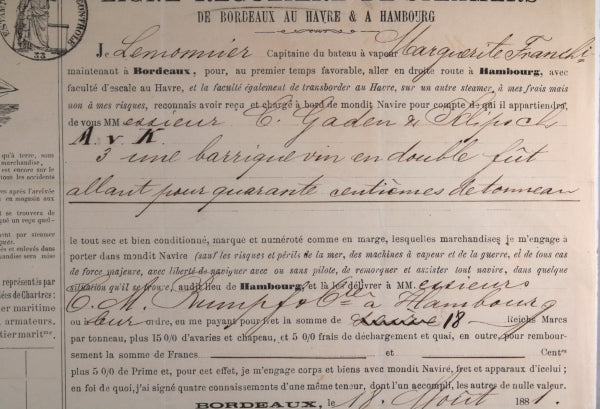 LIGNE RÉGULIÈRE DE STEAMERS
DE BORDEAUX AU HAVRE & A HAMBOURG
CONTROLE
33
Je Lemonnier Capitaine du bateau à vapeur Marguerite Franchi
maintenant à Bordeaux, pour, au premier temps favorable, aller en droite route à Hambourg, avec
faculté d'escale au Havre, et la faculté également de transborder au Havre, sur un autre steamer, à mes frais mais
non à mes risques, reconnais avoir reçu et chargé à bord de mondit Navire pour compte de qui il appartiendra,
de vous MM essieur C. Gaden & Klipsch
A v K.
3 une barrique vin en double fût
allant pour quarante centièmes de tonneau
le tout sec et bien conditionné, marque et numéroté comme en marge, lesquelles marchandises je m'engage à
porter dans mondit Navire (sauf les risques et périls de la mer, des machines à vapeur et de la guerre, et de tous cas
de force majeure, avec liberté de naviguer avec ou sans pilote, de remorquer et assister tout navire, dans quelque
situation qu'il se trouve) audit lieu de Hambourg, et là les délivrer à MM. essieurs
C. M. Rumpf & Cie à Hambourg
ou à leur ordre, en me payant pour fret la somme de 18 Reichs Marcs
par tonneau, plus 15 0/0 d'avaries et chapeau, et 5 0/0 frais de déchargement et quai, en outre, pour rembour-
sement la somme de Francs et Cent^es
plus 5 0/0 de Prime et, pour cet effet, je m'engage corps et biens avec mondit Navire, fret et apparaux d'icelui;
en foi de quoi, j'ai signé quatre connaissements d'une même teneur, dont l'un accompli, les autres de nulle valeur.
BORDEAUX, le 18 Août 1881.
qu'à terre, sans
marchandise,
est encore sur le
les accidents
après l'arrivée
en magasin aux
se trouvera de
reçu quel-
par steamer
et enlevés dans
sera mise
représentés par
de Chartres:
maritime
armateurs.
maritime.